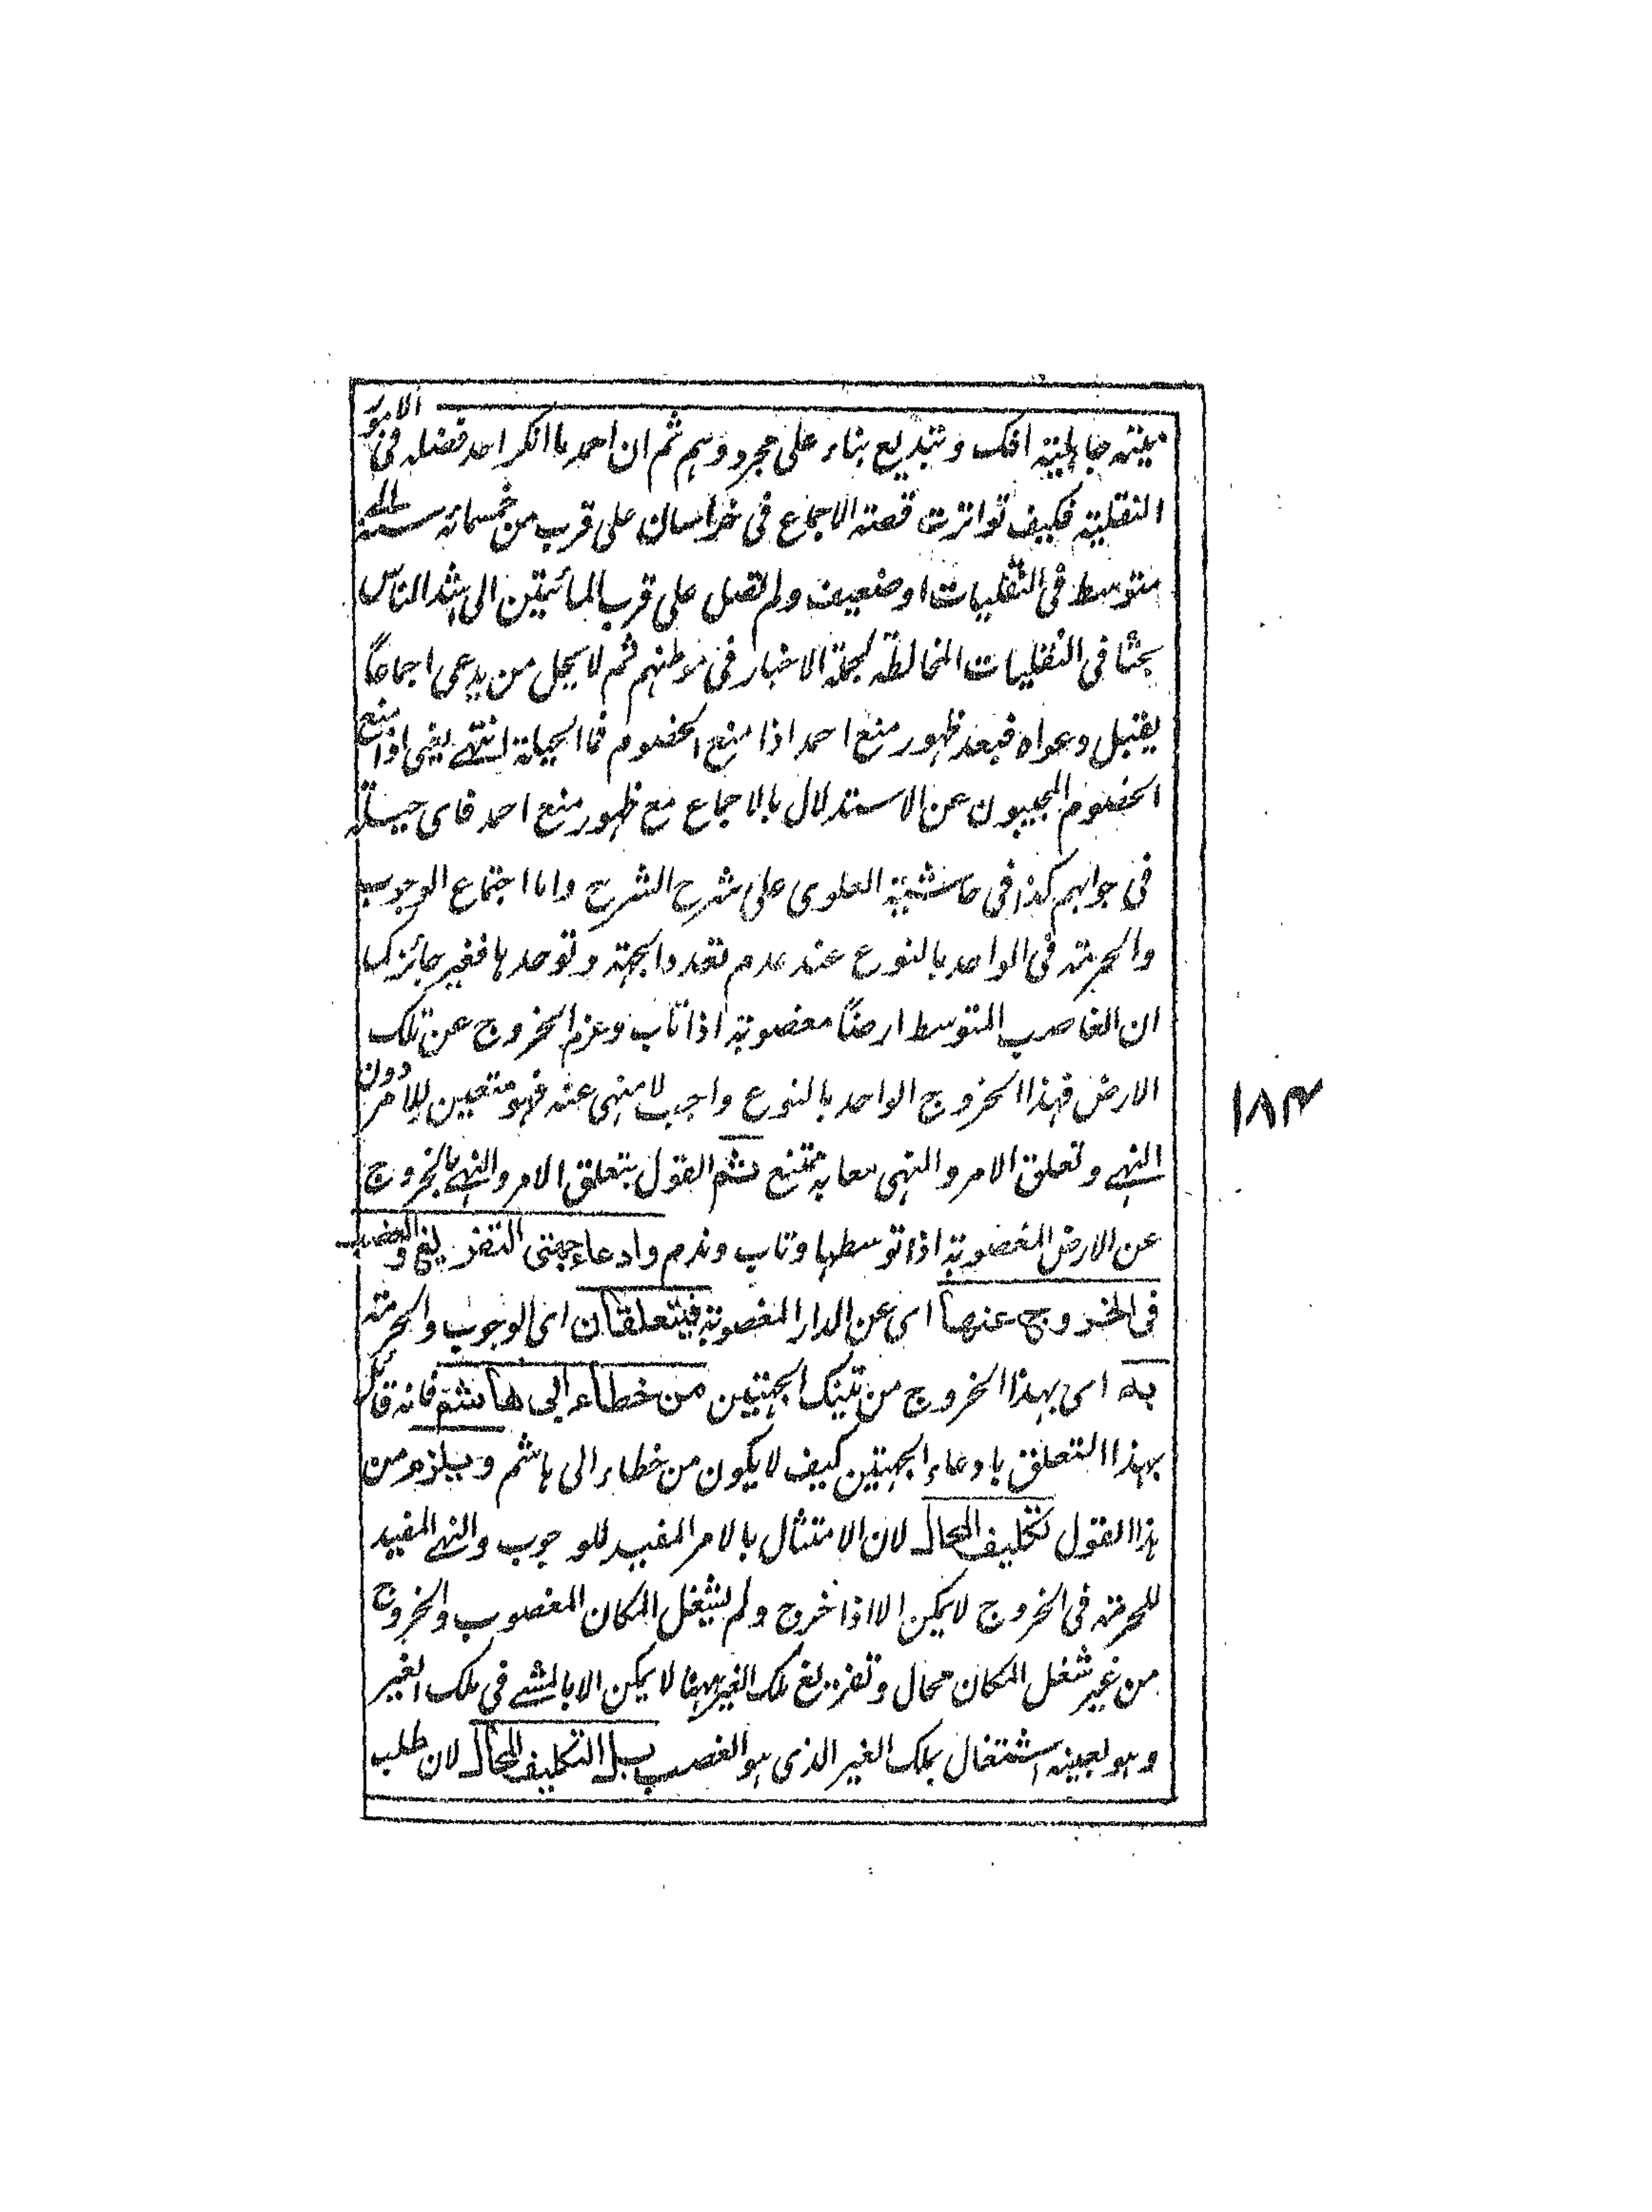 ميتة جاهلية افك وتبديع بناء على مجرد وهم ثم ان احمد ما انكر احد فضله فى الامور
النقلية فكيف تواترت قصة الاجماع فى خراسان على قرب من خمسمائة سنة الى
متوسط فى النقليات او ضعيف ولم تصل على قرب المائتين الى اشد الناس
بحثا فى النقليات المخالطة لجملة الاخبار فى موطنهم ثم لا يحل من يدعى اجماعًا
يقبل دعواه فبعد ظهور منع احمد اذا منع الخصوم فما الحيلة انتهى يعنى اذا منع
الخصوم المجيبون عن الاستدلال بالاجماع مع ظهور منع احمد فاى حيلة
فى جوابهم كذا فى حاشية العلوى على شرح الشرح واما اجتماع الوجوب
والحرمة فى الواحد بالنوع عند عدم تعدد الجهة وتوحدها فغير جائز كما
ان الغاصب المتوسط ارضًا مغصوبة اذا تاب وعزم الخروج عن تلك
الارض فهذا الخروج الواحد بالنوع واجب لا منهى عنه فهو متعين للامر دون
النهى وتعلق الامر والنهى معا به ممتنع ثم القول بتعلق الامر والنهى بالخروج
عن الارض المغصوبة اذا توسطها وتاب وندم وادعاء جهتى التفريغ والغصب
فى الخروج عنها اى عن الدار المغصوبة فيتعلقان اى الوجوب والحرمة
به اى بهذا الخروج من تينك الجهتين من خطاء ابى هاشم فانه قائل
بهذا التعلق بادعاء الجهتين كيف لا يكون من خطاء ابى هاشم ويلزم من
هذا القول تكليف المحال لان الامتثال بالامر المفيد للوجوب والنهى المفيد
للحرمة فى الخروج لا يمكن الا اذا خرج ولم يشغل المكان المغصوب والخروج
من غير شغل المكان محال وتفريغ ملك الغير ههنا لا يمكن الا بالمشى فى ملك الغير
وهو بعينه اشتغال بملك الغير الذى هو الغصب بل التكليف المحال لان طلب
١٨٣